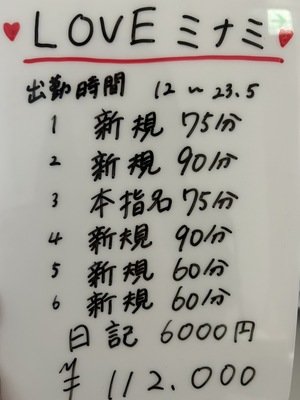 LOVE ミナミ
出勤時間 12〜23.5
1 新規 75分
2 新規 90分
3 本指名 75分
4 新規 90分
5 新規 60分
6 新規 60分
日記 6000円
¥112.000